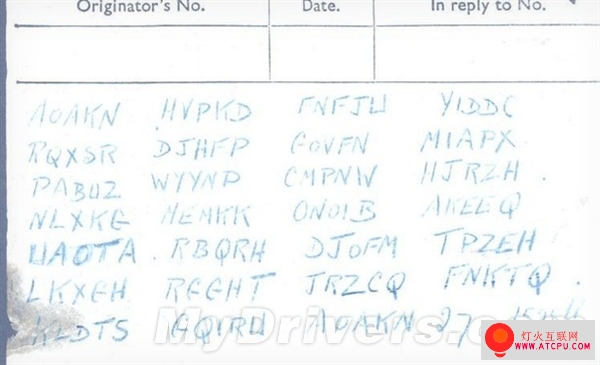 Originator's No. Date. In reply to No.
AOAKN HVPKD FNFJW YIDDC
RQXSR DJHFP GOVFN MIAPX
PABUZ WYYNP CMPNW HJRZH
NLXKG MEMKK ONOIB AKEEQ
WAOTA RBQRH DJOFM TPZEH
LKXGH RGGHT JRZCQ FNKTQ
KLDTS GQIRW AOAKN 27 1525/6
MyDrivers.com
灯火互联网
WWW.ATCPU.COM